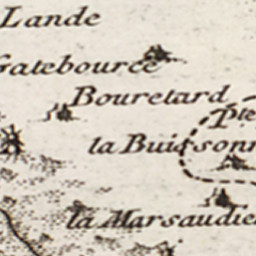 Lande
Gatebource
Bouretard
Ple
la Buissonn
la Marsaudie